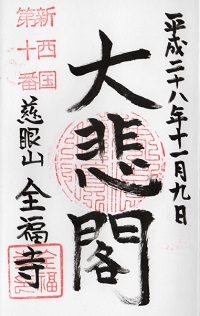 平成二十八年十一月九日
大悲閣
新西国
第十番
慈眼山 全福寺